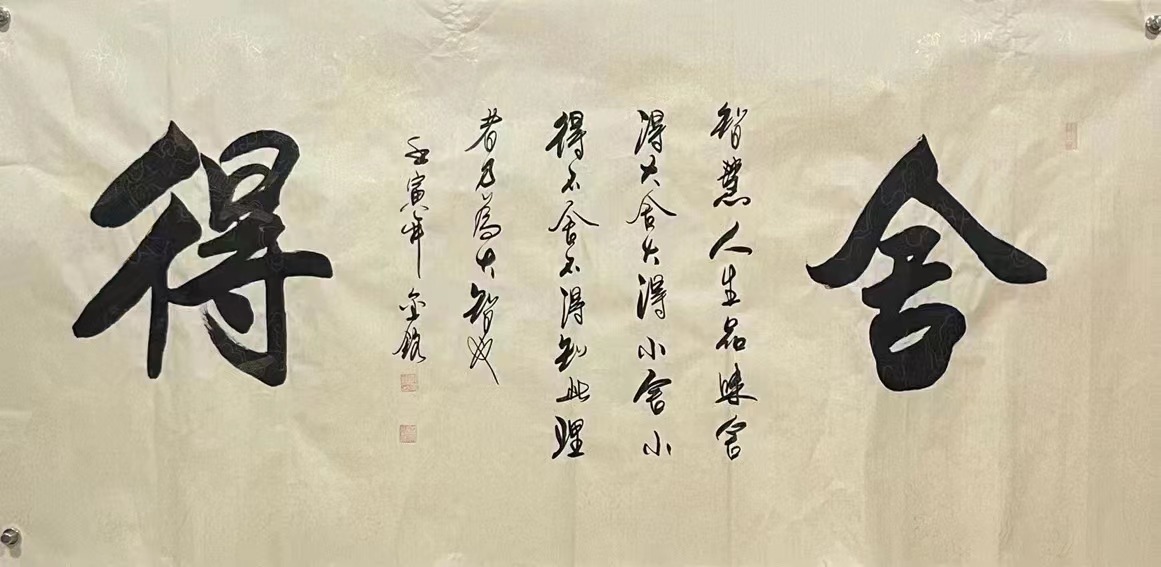 舍
智慧人生品味舍
得大舍大得小舍小
得不舍不得知此理
者乃為大智也
壬寅年 金銘
得